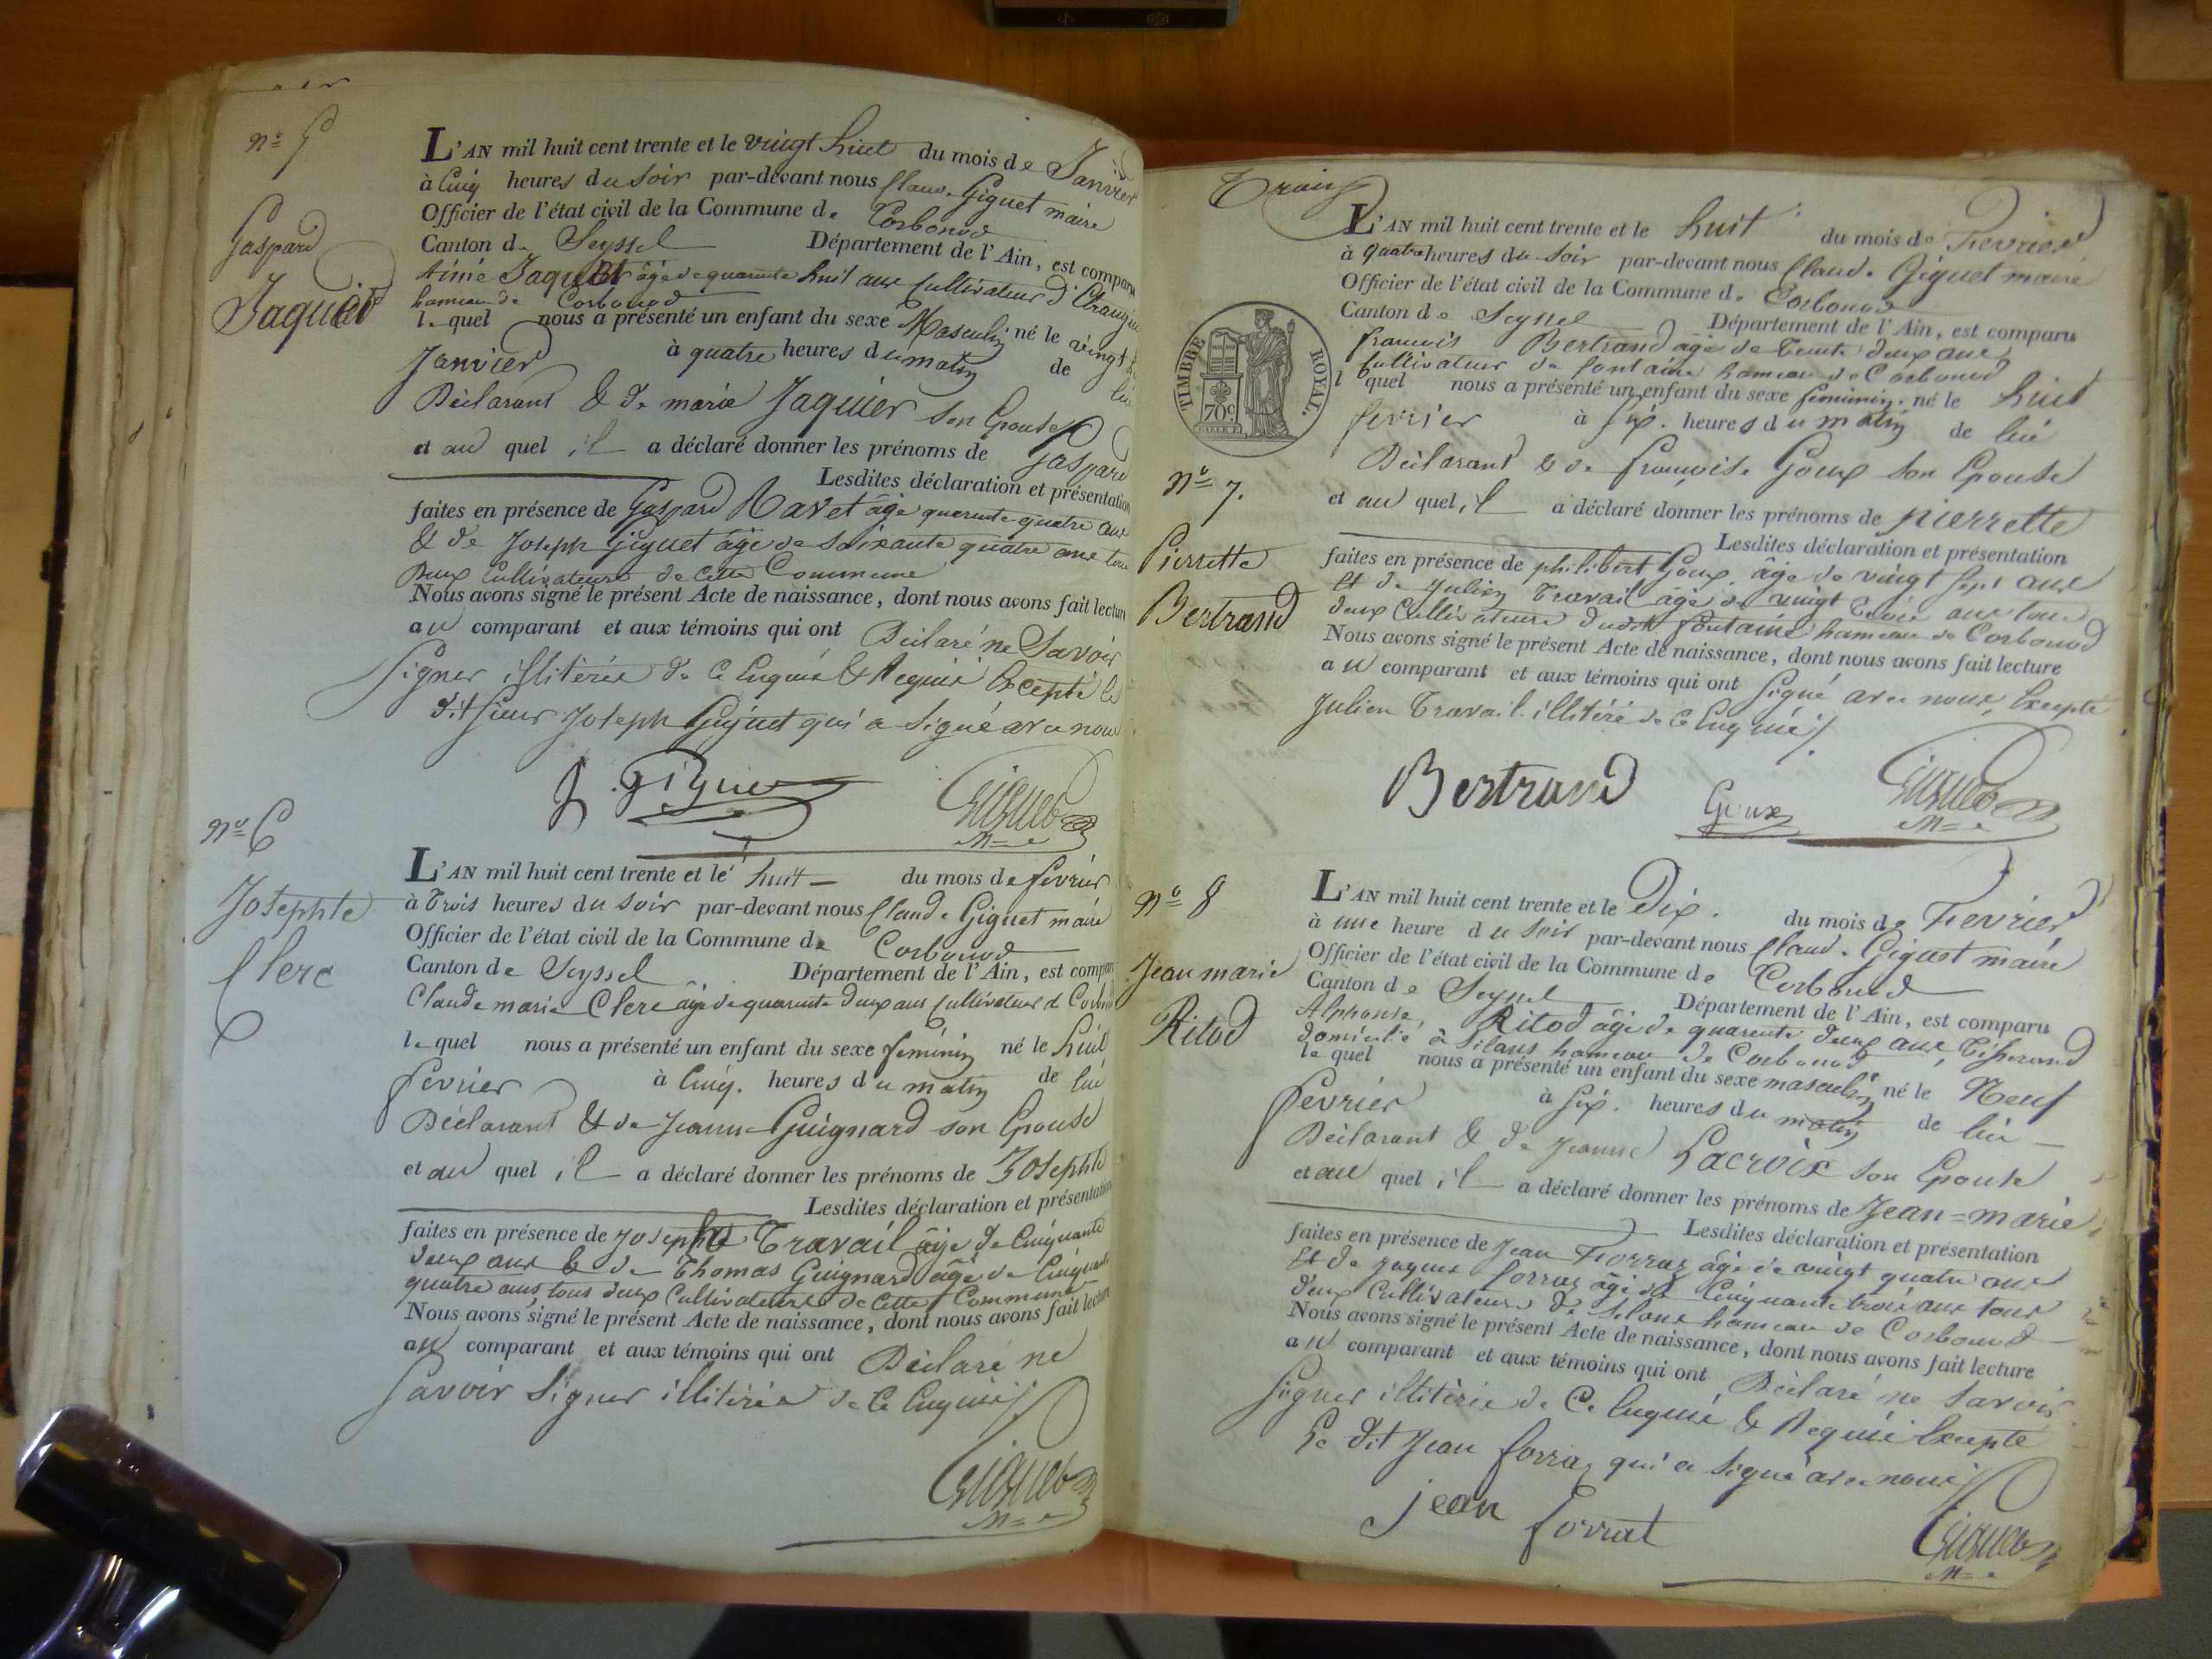 nº 5
Gaspard
Jaquier
L'AN mil huit cent trente et le vingt huit du mois de Janvier
à Cinq heures du soir par-devant nous Claude Giguet maire
Officier de l'état civil de la Commune de Corbonod
Canton de Seyssel Département de l'Ain, est comparu
Aimé Jaquier âgé de quarante huit ans Cultivateur d'
hameau de Corbonod
le quel nous a présenté un enfant du sexe Masculin né le vingt
Janvier à quatre heures du matin de lui
Déclarant & de marie Jaquier son Epouse
et au quel il a déclaré donner les prénoms de Gaspard
Lesdites déclaration et présentation
faites en présence de Gaspard Ravet âgé quarente quatre ans
& de Joseph Giguet âgé de Soixante quatre ans tous
Deux Cultivateurs de cette Commune
Nous avons signé le présent Acte de naissance, dont nous avons fait lecture
au comparant et aux témoins qui ont Déclaré ne Savoir
Signer illitérés de Ce Enquis & Requis Excepté le
dit Sieur Joseph Giguet qui a Signé avec nous
J. gigue
Giguet
M=e
Nº 6
Josephte
Clerc
L'AN mil huit cent trente et le huit du mois de février
à Trois heures du soir par-devant nous Claude Giguet maire
Officier de l'état civil de la Commune de Corbonod
Canton de Seyssel Département de l'Ain, est comparu
Claude marie Clerc âgé de quarente deux ans Cultivateur à
le quel nous a présenté un enfant du sexe féminin né le huit
fevrier à Cinq. heures du matin de lui
Déclarant & de Jeanne Guignard son Epouse
et au quel il a déclaré donner les prénoms de Josephte
Lesdites déclaration et présentation
faites en présence de Joseph Travail âgé de Cinquante
deux ans & de Thomas Guignard âgé de Cinquante
quatre ans, tous deux Cultivateurs de Cette Commune
Nous avons signé le présent Acte de naissance, dont nous avons fait lecture
au comparant et aux témoins qui ont Déclaré ne
Savoir Signer illitérés de Ce Enquis
Giguet
M=e
Trois
L'AN mil huit cent trente et le huit du mois de Fevrier
à quatre heures du soir par-devant nous Claude Giguet maire
Officier de l'état civil de la Commune de Corbonod
Canton de Seyssel Département de l'Ain, est comparu
francois Bertrand âgé de Trente deux ans
Cultivateur de fontaine hameau de Corbonod
l quel nous a présenté un enfant du sexe feminin né le huit
fevrier à Six. heures du matin de lui
Déclarant & de françoise Goux son Epouse
et au quel, il a déclaré donner les prénoms de pierrette
Lesdites déclaration et présentation
faites en présence de philibert Goux, âgé de vingt sept ans
Et de Julien Travail âgé de vingt trois ans tous
deux Cultivateurs dudit fontaine hameau de Corbonod
Nous avons signé le présent Acte de naissance, dont nous avons fait lecture
au comparant et aux témoins qui ont Signé avec nous, Excepté
Julien Travail illitéré de Ce Enquis
TIMBRE ROYAL.
70c
Nº 7.
Pierrette
Bertrand
Bertrand
Goux
Giguet
M=e
Nº 8
Jean marie
Ritod
L'AN mil huit cent trente et le Dix. du mois de Fevrier
à une heure du soir par-devant nous Claude Giguet maire
Officier de l'état civil de la Commune de Corbonod
Canton de Seyssel Département de l'Ain, est comparu
Alphonse Ritod âgé de quarente deux ans, Tisserand
domicilié à Silans hameau de Corbonod
le quel nous a présenté un enfant du sexe masculin né le Neuf
fevrier à Six. heures du matin de lui
Déclarant & de Jeanne Lacroix son Epouse
et au quel il a déclaré donner les prénoms de Jean=marie
Lesdites déclaration et présentation
faites en présence de Jean Forraz âgé de vingt quatre ans
Et de Jaques forraz âgé de Cinquante trois ans tous
deux Cultivateurs de Silans hameau de Corbonod
Nous avons signé le présent Acte de naissance, dont nous avons fait lecture
au comparant et aux témoins qui ont Déclaré ne Savoir
Signer illitérés de Ce Enquis & Requis Excepté
Le dit Jean forraz qui a Signé avec nous
jean forrat
Giguet
M=e